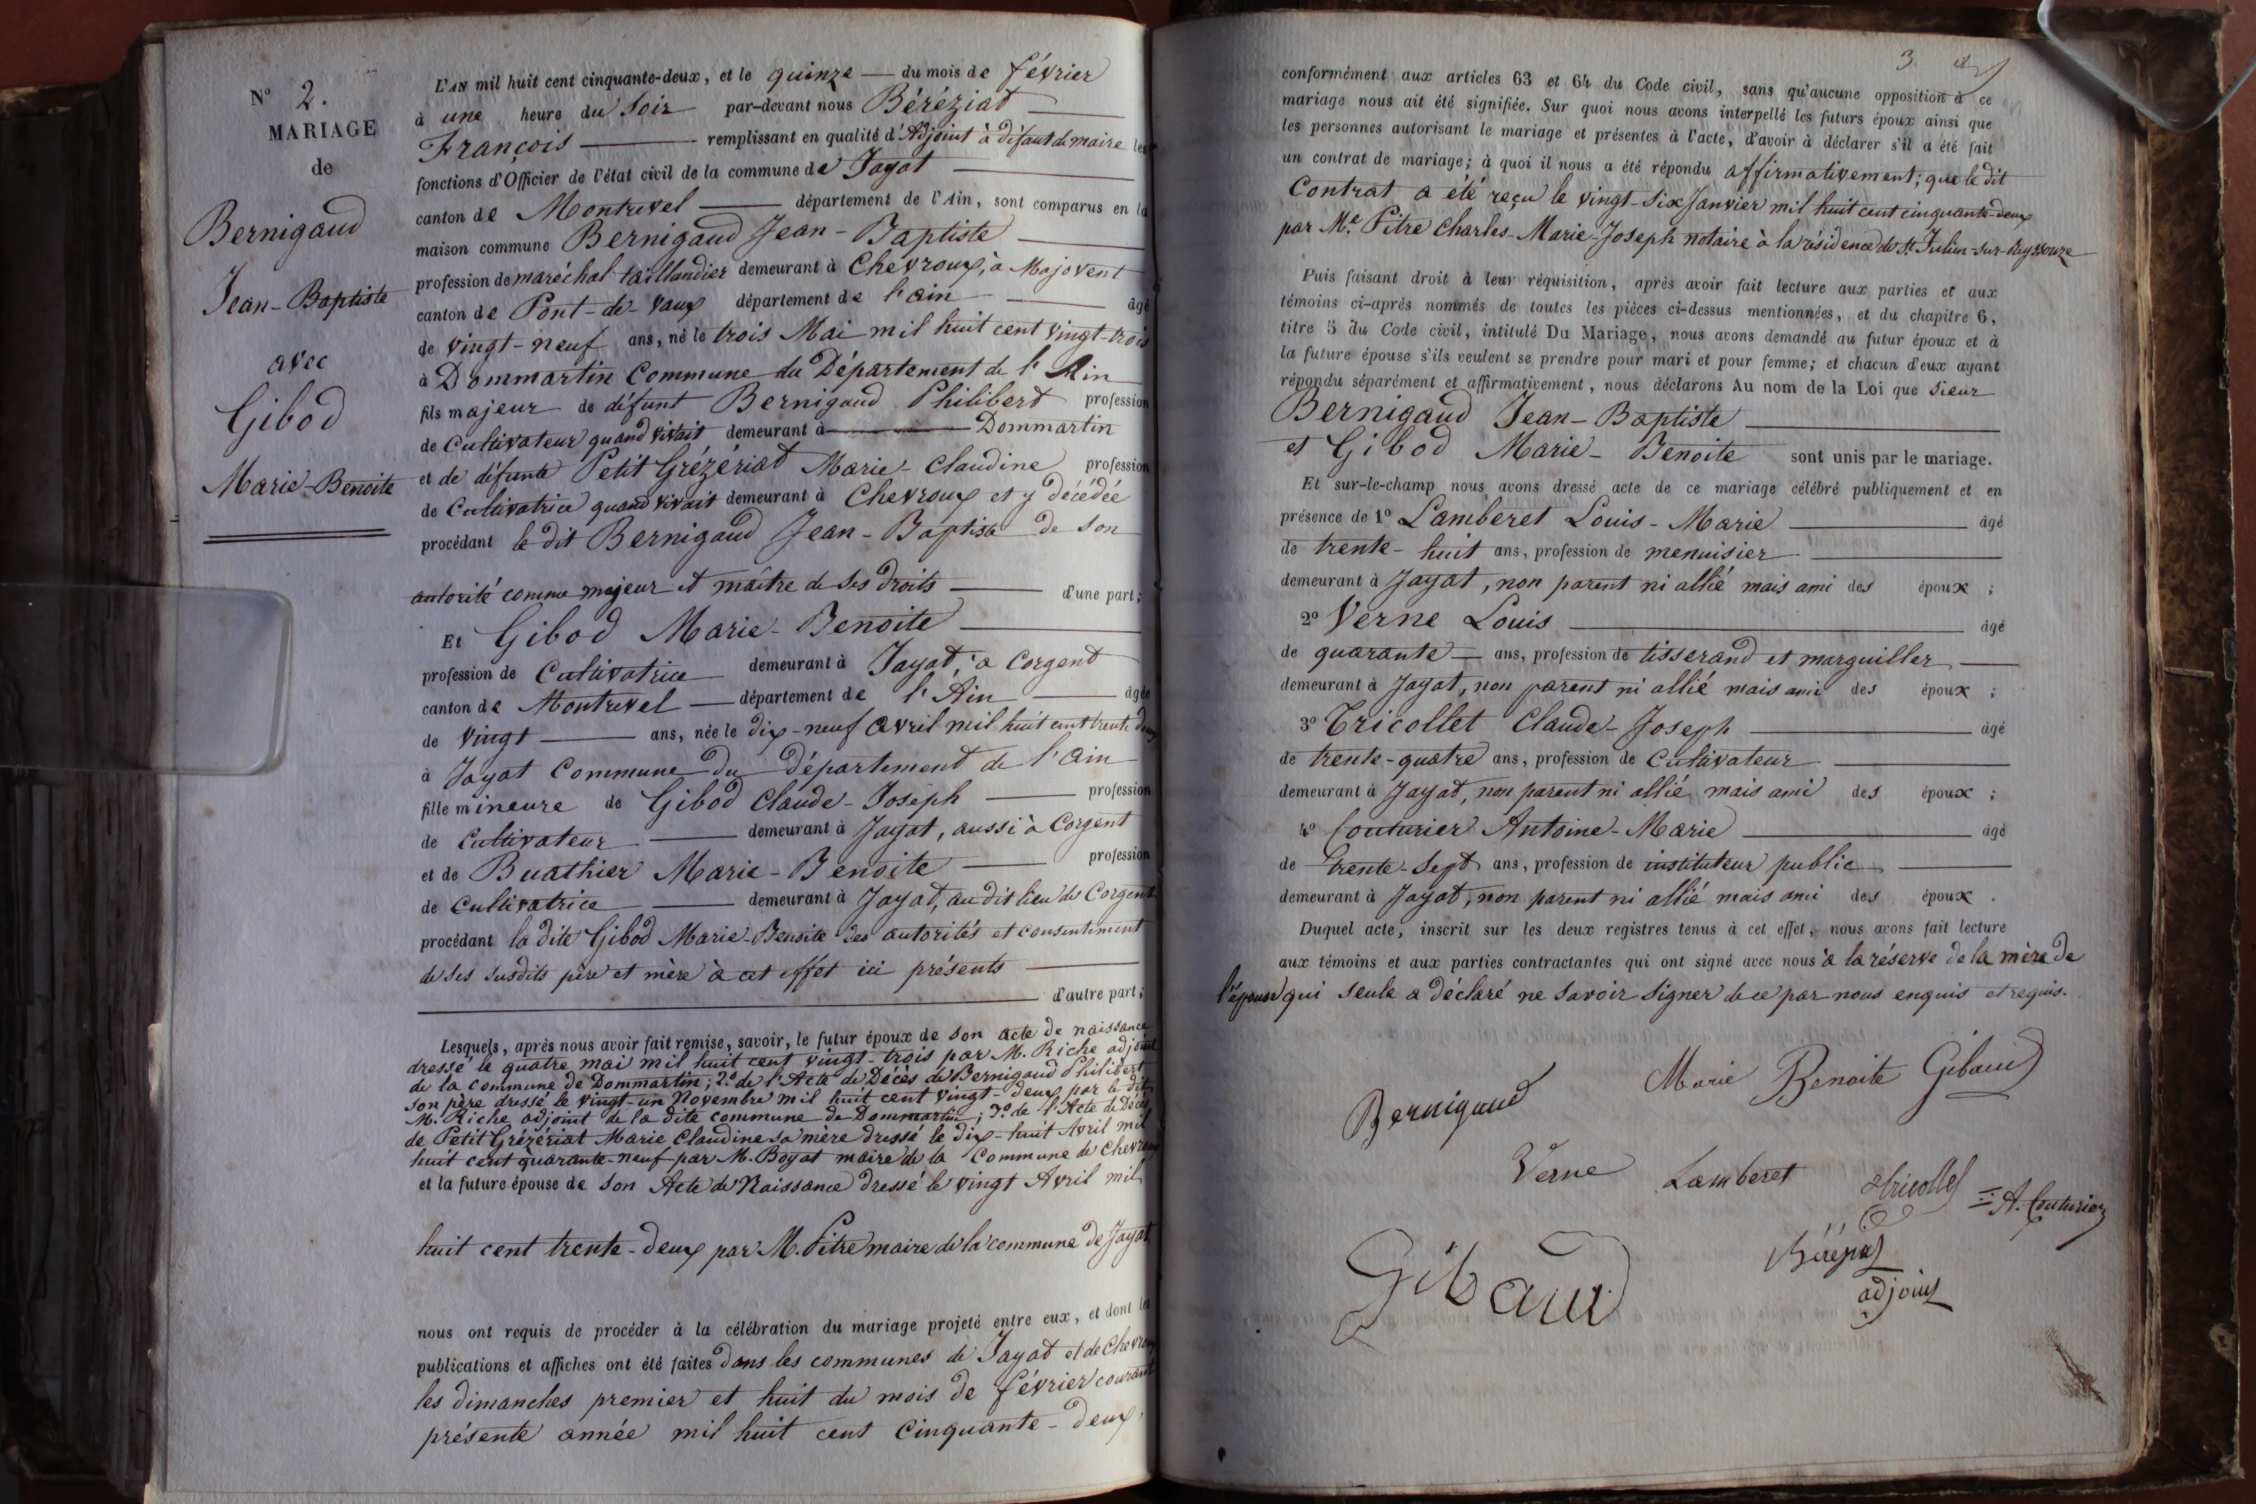 N° 2.
MARIAGE
de
Bernigaud
Jean-Baptiste
avec
Gibod
Marie-Benoite
L'AN mil huit cent cinquante-deux, et le quinze — du mois de février
à une heure du soir par-devant nous Béréziat
François — remplissant en qualité d'Adjoint à défaut de maire les
fonctions d'Officier de l'état civil de la commune de Jayat
canton de Montrevel — département de l'Ain, sont comparus en la
maison commune Bernigaud Jean-Baptiste
profession de maréchal taillandier demeurant à Chevroux, à Majovent
canton de Pont-de-Vaux département de l'ain — âgé
de vingt-neuf ans, né le trois Mai mil huit cent vingt-trois
à Dommartin Commune du Département de l'Ain
fils majeur de défunt Bernigaud Philibert profession
de Cultivateur quand vivait demeurant à — Dommartin
et de défunte Petit Grézériat Marie-Claudine profession
de Cultivatrice quand vivait demeurant à Chevroux et y décédée
procédant le dit Bernigaud Jean-Baptiste de son
autorité comme majeur et maître de ses droits — d'une part;
Et Gibod Marie-Benoite
profession de Cultivatrice demeurant à Jayat, à Corgent
canton de Montrevel — département de l'Ain — âgée
de vingt — ans, née le dix-neuf avril mil huit cent trente deux
à Jayat Commune du Département de l'ain
fille mineure de Gibod Claude-Joseph — profession
de Cultivateur — demeurant à Jayat, aussi à Corgent
et de Buathier Marie-Benoite — profession
de Cultivatrice — demeurant à Jayat, au dit lieu de Corgent
procédant la dite Gibod Marie-Benoite des autorités et consentiment
de ses susdits père et mère à cet effet ici présents
d'autre part;
Lesquels, après nous avoir fait remise, savoir, le futur époux de son acte de naissance
dressé le quatre mai mil huit cent vingt-trois par M. Riche adjoint
de la commune de Dommartin; 2° de l'Acte de Décès de Bernigaud Philibert
son père dressé le vingt-un Novembre mil huit cent vingt-deux par le dit
M. Riche adjoint de la dite commune de Dommartin; 3° de l'Acte de Décès
de Petit Grézériat Marie Claudine sa mère dressé le dix-huit Avril mil
huit cent quarante-neuf par M. Boyat maire de la Commune de Chevroux
et la future épouse de son Acte de Naissance dressé le vingt Avril mil
huit cent trente-deux par M. Pitre maire de la commune de Jayat
nous ont requis de procéder à la célébration du mariage projeté entre eux, et dont les
publications et affiches ont été faites dans les communes de Jayat et de Chevroux
les dimanches premier et huit du mois de février courant
présente année mil huit cent cinquante-deux,
3
conformément aux articles 63 et 64 du Code civil, sans qu'aucune opposition à ce
mariage nous ait été signifiée. Sur quoi nous avons interpellé les futurs époux ainsi que
les personnes autorisant le mariage et présentes à l'acte, d'avoir à déclarer s'il a été fait
un contrat de mariage; à quoi il nous a été répondu affirmativement; que le dit
Contrat a été reçu le vingt-six Janvier mil huit cent cinquante-deux
par Me. Pitre Charles-Marie-Joseph notaire à la résidence de St. Julien-sur-Reyssouze
Puis faisant droit à leur réquisition, après avoir fait lecture aux parties et aux
témoins ci-après nommés de toutes les pièces ci-dessus mentionnées, et du chapitre 6,
titre 5 du Code civil, intitulé Du Mariage, nous avons demandé au futur époux et à
la future épouse s'ils veulent se prendre pour mari et pour femme; et chacun d'eux ayant
répondu séparément et affirmativement, nous déclarons Au nom de la Loi que sieur
Bernigaud Jean-Baptiste
et Gibod Marie-Benoite sont unis par le mariage.
Et sur-le-champ nous avons dressé acte de ce mariage célébré publiquement et en
présence de 1° Lamberet Louis-Marie — âgé
de trente-huit ans, profession de menuisier
demeurant à Jayat, non parent ni allié mais ami des époux;
2° Verne Louis — âgé
de quarante — ans, profession de tisserand et marguiller
demeurant à Jayat, non parent ni allié mais ami des époux;
3° Tricollet Claude-Joseph — âgé
de trente-quatre ans, profession de Cultivateur
demeurant à Jayat, non parent ni allié mais ami des époux;
4° Couturier Antoine-Marie — âgé
de trente-sept ans, profession de instituteur public
demeurant à Jayat, non parent ni allié mais ami des époux.
Duquel acte, inscrit sur les deux registres tenus à cet effet, nous avons fait lecture
aux témoins et aux parties contractantes qui ont signé avec nous à la réserve de la mère de
l'épouse qui seule a déclaré ne savoir signer de ce par nous enquis et requis.
Marie Benoite Gibaud
Bernigaud
Verne Lamberet Tricollet A. Couturier
Gibaud
adjoint